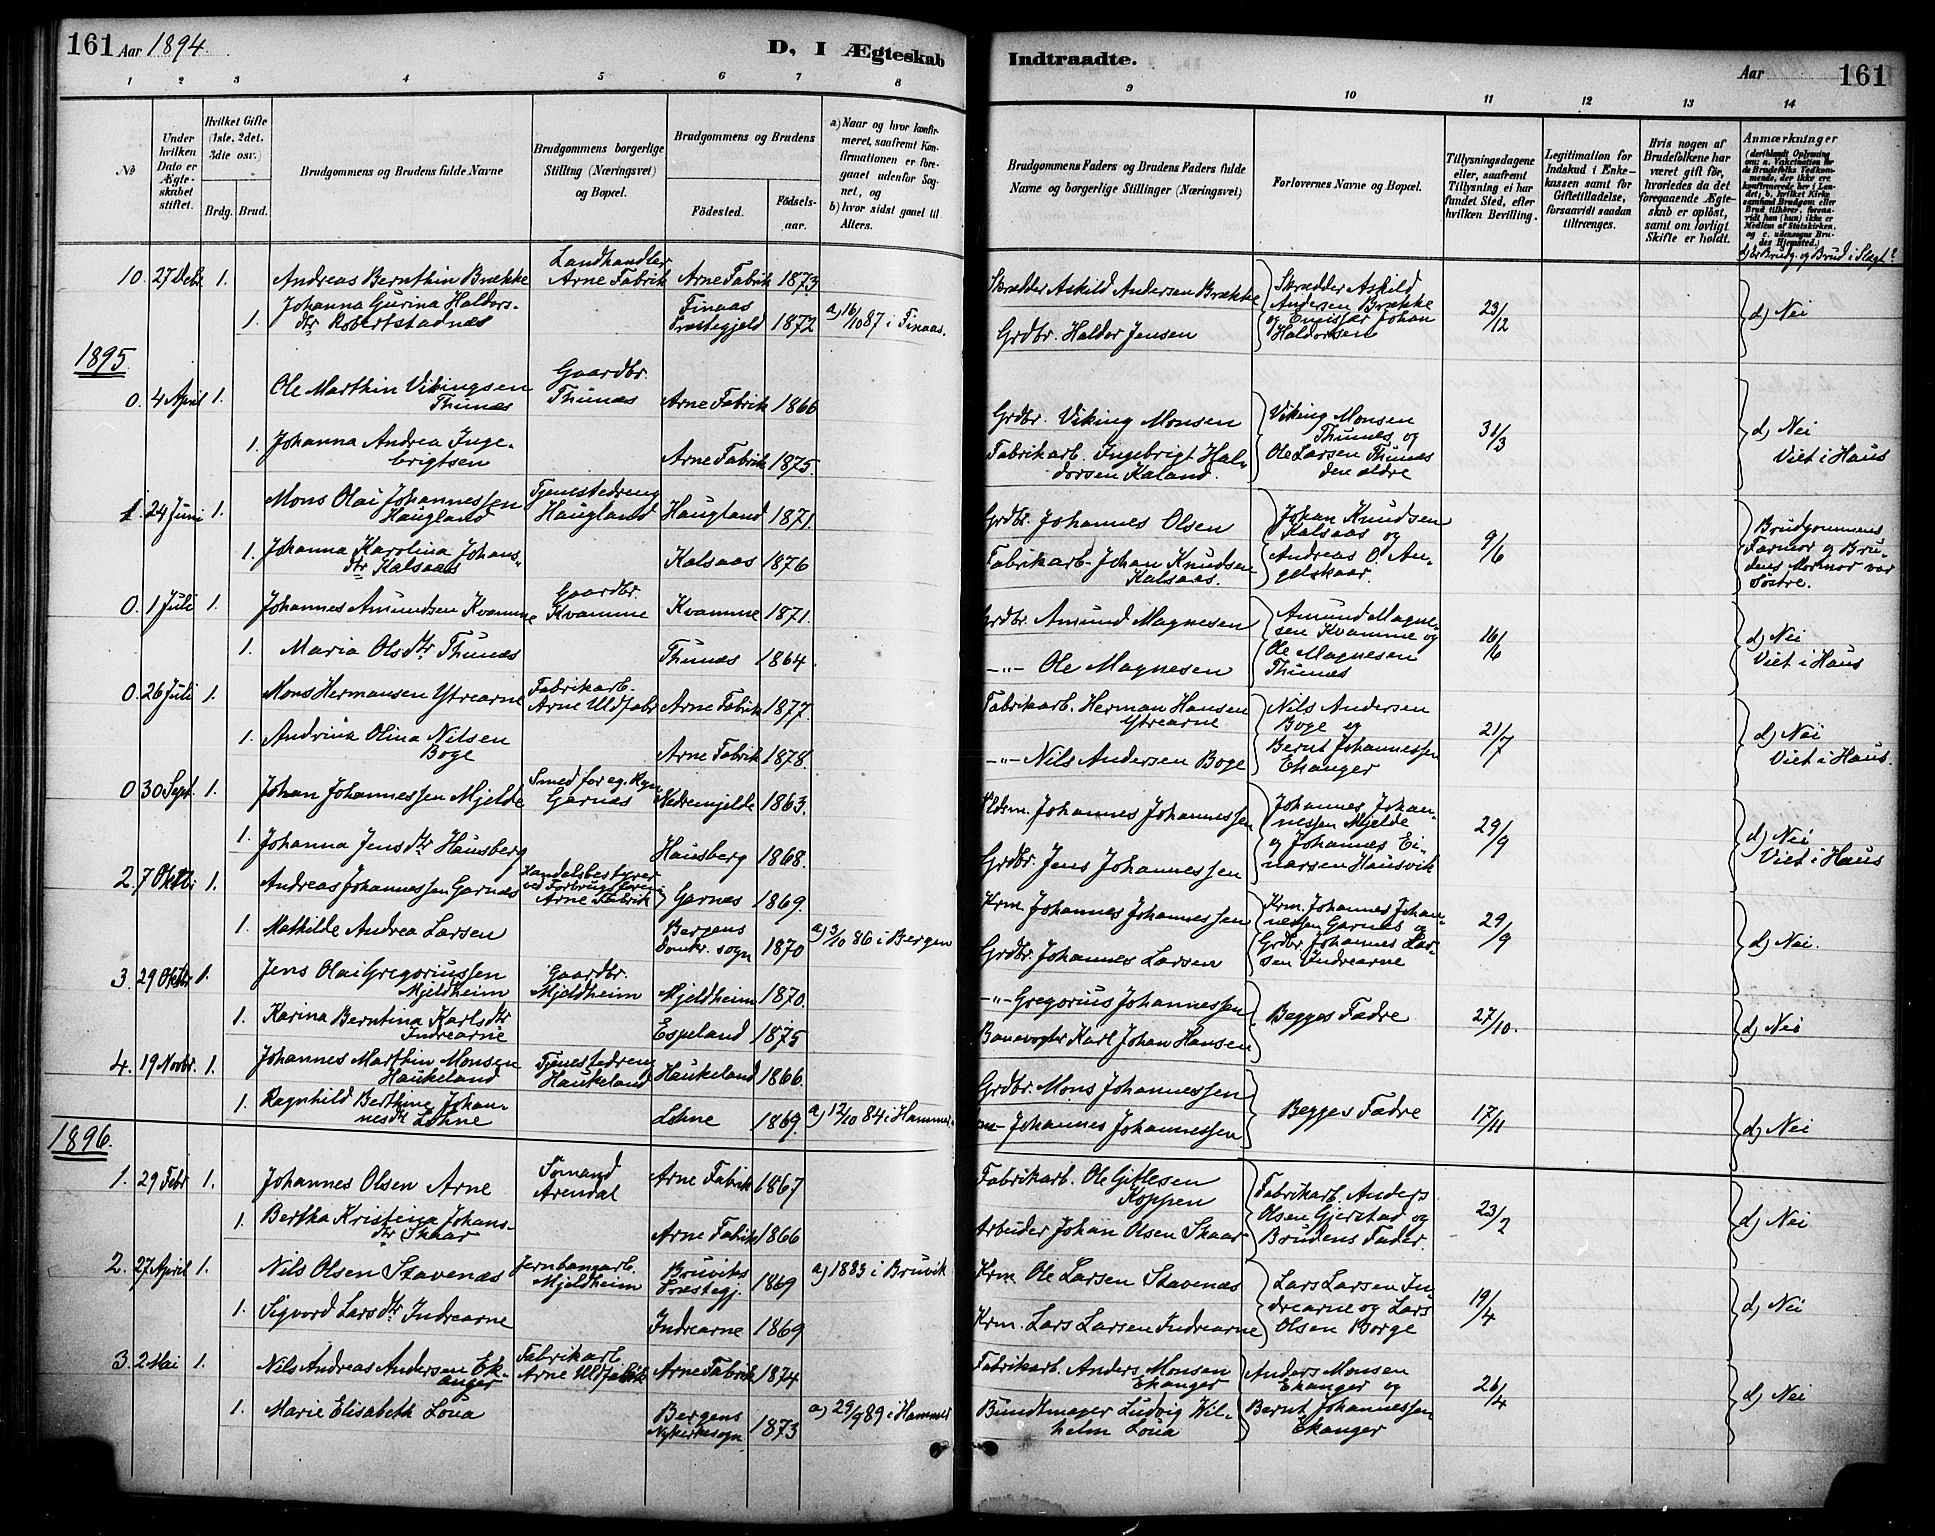 161 Aar 1894.
D, I Ægteskab
Indtraadte.
Aar
161
1 2 3 4 5 6 7 8
9 10 11 12 13 14
No
Under hvilken Dato er Ægteskabet stiftet.
Hvilket Gifte (1ste, 2det. 3die osv.)
Brdg. Brud.
Brudgommens og Brudens fulde Navne
Brudgommens borgerlige Stilling (Næringsvei) og Bopæl.
Brudgommens og Brudens
Fødested.
Fødselsaar.
a) Naar og hvor konfirmeret, saafremt Konfirmationen er foregaaet udenfor Sognet, og
b) hvor sidst gaaet til Alters.
Brudgommens Faders og Brudens Faders fulde Navne og borgerlige Stillinger (Næringsvei)
Forlovernes Navne og Bopæl.
Tillysningsdagene eller, saafremt Tillysning ei har fundet Sted, efter hvilken Bevilling.
Legitimation for Indskud i Enkekassen samt for Giftetilladelse, forsaavidt saadan tiltrænges.
Hvis nogen af Brudefolkene har været gift før, hvorledes da det foregaaende Ægteskab er opløst, samt om lovligt Skifte er holdt.
Anmærkninger
(deriblandt Oplysning om: a. Vaccination for de Brudefolks Vedkommende, der ikke ere konfirmerede her i Landet; b. hvilket Kirkesamfund Brudgom eller Brud tilhører, forsaavidt han (hun) ikke er Medlem af Statskirken, og c. udensogns Brudes Hjemsted.)
d) Er Brudg. og Brud i Slægt?
10. 27 Debr. 1. Andreas Bernthin Brække Landhandler Arne Fabrik Arne Fabrik 1873.
1. Johanna Gurina Haldorsdtr Robertstadnes Finaas Præstegjeld 1872 a) 16/10 87 i Finaas.
Skrædder Askild Andersen Brække
Grdbr. Haldor Jensen
Skrædder Askild Andersen Brække og Johan Haldorsen
23/12
d) Nei
1895.
0. 4 April 1. Ole Marthin Vikingsen Thunæs Gaardbr. Thunæs Arne Fabrik 1866
1. Johanna Andrea Ingebrigtsen Arne Fabrik 1875.
Grdbr. Viking Monsen
Fabrikarb. Ingebrigt Haldorsen Kaland.
Viking Monsen Thunes og Ole Larsen Thunæs den ældre
31/3
d) Nei
Viet i Haus
1. 24 Juni 1. Mons Olai Johannessen Haugland Tjenestedreng Haugland Haugland 1871.
1. Johanna Karolina Johansdtr Kalsaas Kalsaas 1876
Grdbr. Johannes Olsen
Fabrikarb. Johan Knudsen Kalsaas.
Johan Knudsen Kalsaas og Andreas O. Angelskaar.
9/6
Brudgommens Farmor og Brudens Mormor var Søstre.
0. 1 Juli 1. Johannes Amundsen Kvamme Gaardbr. Kvamme Kvamme 1871.
1. Maria Olsdtr Thunæs Thunæs 1864
Grdbr. Amund Magnesen
-"- Ole Magnesen
Amund Magnesen Kvamme og Ole Magnesen Thunæs
16/6
d) Nei
Viet i Haus
0. 26 Juli 1. Mons Hermansen Ytrearne Fabrikarb. Arne Uldfabr. Arne Fabrik 1877.
1. Andrina Olina Nilsen Boge Arne Fabrik 1878.
Fabrikarb. Herman Hansen Ytrearne
-"- Nils Andersen Boge
Nils Andersen Boge og Bernt Johannessen Ekanger
21/7
d) Nei
Viet i Haus.
0. 30 Sept. 1. Johan Johannessen Mjelde Smed for eg. Regn. Garnæs Nedremjelde 1863.
1. Johanna Jensdtr Hausberg Hausberg 1868.
Johannes Johannessen
Grdbr. Jens Johannessen
Johannes Johannessen Mjelde og Johannes Einarsen Hausvik
29/9
d) Nei
Viet i Haus
2. 7 Oktbr 1. Andreas Johannessen Garnæs Handelsbestyrer ved Forbrugsforen. Arne Fabrik Garnæs 1869.
1. Mathilde Andrea Larsen Bergens Domk. sogn 1870 a) 3/10 86 i Bergen
Krm. Johannes Johannessen
Grdbr. Johannes Larsen
Krm. Johannes Johannessen Garnes og Grdbr. Johannes Larsen Indrearne
29/9
d) Nei.
3. 29 Oktbr 1. Jens Olai Gregoriussen Mjeldheim Gaardbr. Mjeldheim Mjeldheim 1870.
1. Karina Berntina Karlsdtr Indrearne Espeland 1875
-"- Gregorius Johannessen
Banevogter Karl Johan Hansen
Begges Fædre
27/10.
d) Nei
4. 19 Novbr. 1. Johannes Marthin Monsen Haukeland Tjenestedreng Haukeland Haukeland 1866.
1. Ragnhild Berthine Johannesdtr Lohne Lohne 1869. a) 12/10 84 i Hammer.
Grdbr. Mons Johannessen
-"- Johannes Johannessen
Begges Fædre
17/11
d) Nei
1896.
1. 29 Febr 1. Johannes Olsen Arne Sømand Arendal Arne Fabrik 1867
1. Bertha Kristina Johansdtr Skaar Arne Fabrik 1866
Fabrikarb. Ole Gitlesen Koppen
Arbeider Johan Olsen Skaar
Fabrikarb. Anders Olsen Gjerstad og Brudens Fader.
23/2
d) Nei
2. 27 April 1. Nils Olsen Stavenæs Jernbanearb. Mjeldheim Bruviks Præstegj. 1869 a) 1883 i Bruvik
1. Sigvord Larsdtr Indrearne Indrearne 1869
Krm. Ole Larsen Stavenæs
Krm. Lars Larsen Indrearne
Lars Larsen Indrearne og Lars Olsen Borge
19/4
d) Nei
3. 2 Mai 1. Nils Andreas Andersen Ekanger Fabrikarb. Arne Uldfabrik Arne Fabrik 1874
1. Marie Elisabeth Loua Bergens Nykirkesogn. 1873 a) 29/9 89 i Hammer
Fabrikarb. Anders Monsen Ekanger
Bundtmager Ludvig Wilhelm Loua
Anders Monsen Ekanger og Bernt Johannessen Ekanger
26/4
d) Nei